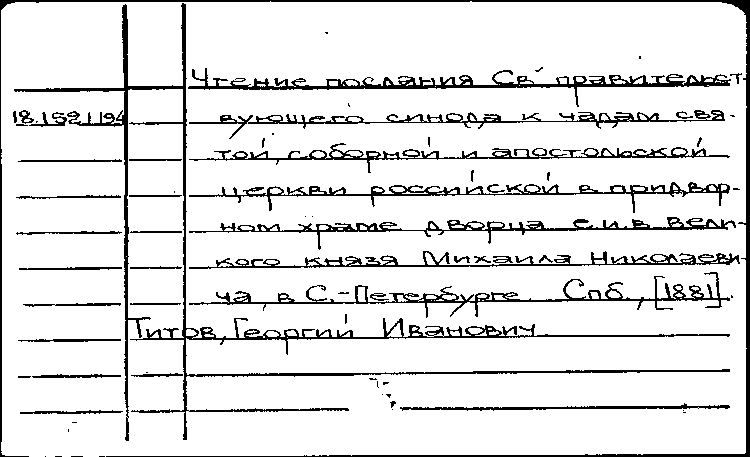 Чтение послания Св. правительст-
18.152.1.194 вующего синода к чадам свя-
той, соборной и апостольской
церкви российской в придвор-
ном храме дворца е.и.в. вели-
кого князя Михаила Николаеви-
ча, в С.-Петербурге. Спб., [1881].
Титов, Георгий Иванович.